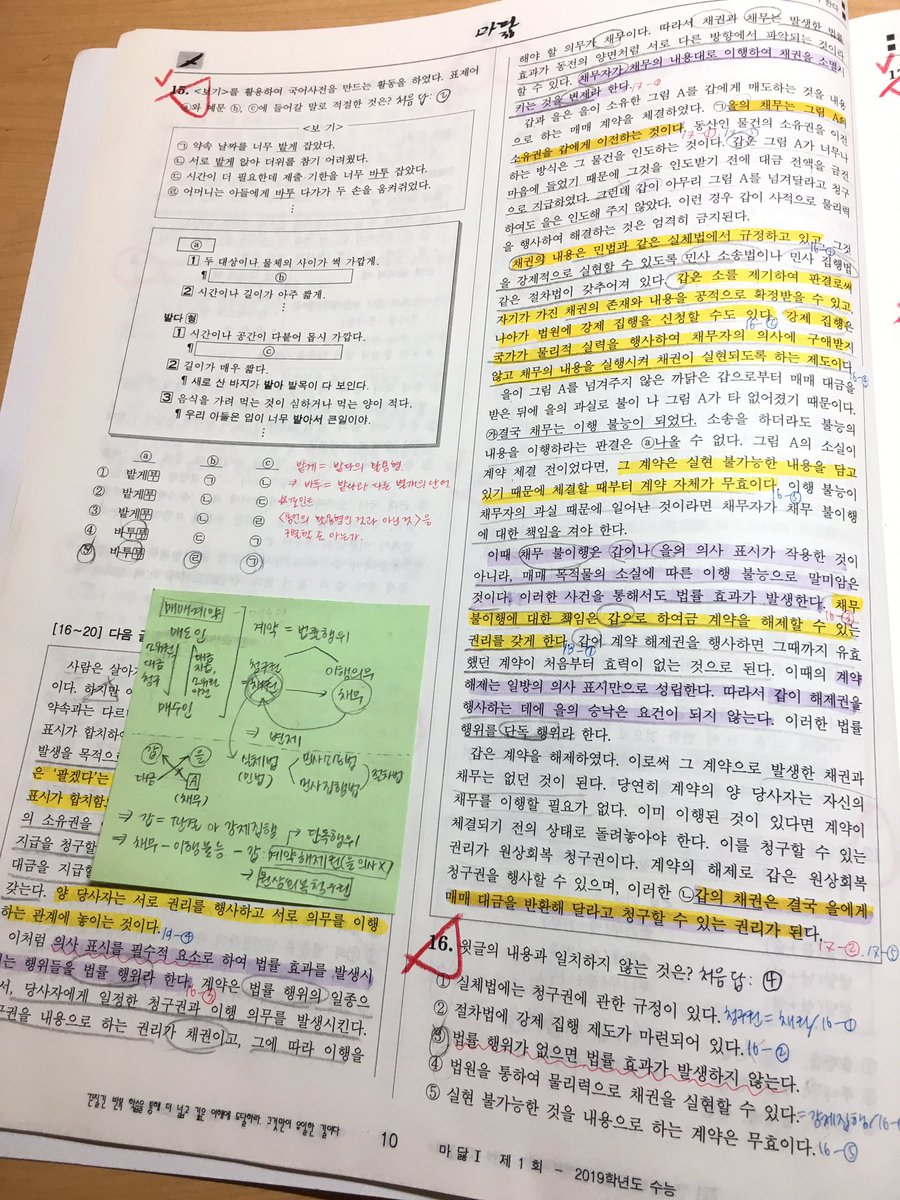 마닳
15. <보기>를 활용하여 국어사전을 만드는 활동을 하였다. 표제어
ⓐ와 예문 ⓑ, ⓒ에 들어갈 말로 적절한 것은? 처음 답: ②
<보 기>
㉠ 약속 날짜를 너무 밭게 잡았다.
㉡ 서로 밭게 앉아 더위를 참기 어려웠다.
㉢ 시간이 더 필요한데 제출 기한을 너무 바투 잡았다.
㉣ 어머니는 아들에게 바투 다가가 두 손을 움켜쥐었다.
⋮
ⓐ
1 두 대상이나 물체의 사이가 썩 가깝게.
¶ ⓑ
2 시간이나 길이가 아주 짧게.
밭다 형
1 시간이나 공간이 다붙어 몹시 가깝다.
¶ ⓒ
2 길이가 매우 짧다.
¶ 새로 산 바지가 밭아 발목이 다 보인다.
3 음식을 가려 먹는 것이 심하거나 먹는 양이 적다.
¶ 우리 아들은 입이 너무 밭아서 큰일이야.
⋮
ⓐ ⓑ ⓒ
① 밭게 부 ㉠ ㉡
② 밭게 부 ㉡ ㉢
③ 밭게 부 ㉡ ㉣
④ 바투 부 ㉢ ㉠
⑤ 바투 부 ㉣ ㉠
밭게 = 밭다의 활용형
⇒ 바투 = 밭다와 다른 별개의 단어
[16~20] 다음 글
사람은 살아가
이다. 하지만 이
약속과는 다르
표시가 합치하여
발생을 목적으
은 '팔겠다'는
표시가 합치함으
의 소유권을
지급을 청구할
대금을 지급할
갖는다. 양 당사자는 서로 권리를 행사하고 서로 의무를 이행
하는 관계에 놓이는 것이다. 19-④
이처럼 의사 표시를 필수적 요소로 하여 법률 효과를 발생시
키는 행위들을 법률 행위라 한다. 계약은 법률 행위의 일종으
로서, 당사자에게 일정한 청구권과 이행 의무를 발생시킨다.
청구권을 내용으로 하는 권리가 채권이고, 그에 따라 이행을
매매계약
매도인
소유권
대금
청구
대금
지급
소유권
이전
매수인
계약 = 법률행위
청구권
채권
이행의무
채무
⇒ 변제
갑 을
대금 A
(채무)
실체법
(민법)
민사소송법
민사집행법
절차법
⇒ 갑 = 판결 아 강제집행
→ 단독행위
⇒ 채무 - 이행불능 - 갑: 계약해제권(을 의사 X)
⇒ 원상회복청구권
해야 할 의무가 채무이다. 따라서 채권과 채무는 발생한 법률
효과가 동전의 양면처럼 서로 다른 방향에서 파악되는 것이라
할 수 있다. 채무자가 채무의 내용대로 이행하여 채권을 소멸시
키는 것을 변제라 한다. 17-①
갑과 을은 을이 소유한 그림 A를 갑에게 매도하는 것을 내용
으로 하는 매매 계약을 체결하였다. ㉠을의 채무는 그림 A의
소유권을 갑에게 이전하는 것이다. 동산인 물건의 소유권을 이전
하는 방식은 그 물건을 인도하는 것이다. 갑은 그림 A가 너무나
마음에 들었기 때문에 그것을 인도받기 전에 대금 전액을 금전
으로 지급하였다. 그런데 갑이 아무리 그림 A를 넘겨달라고 청구
하여도 을은 인도해 주지 않았다. 이런 경우 갑이 사적으로 물리력
을 행사하여 해결하는 것은 엄격히 금지된다.
채권의 내용은 민법과 같은 실체법에서 규정하고 있고, 그것
을 강제적으로 실현할 수 있도록 민사 소송법이나 민사 집행법
같은 절차법이 갖추어져 있다. 갑은 소를 제기하여 판결로써
자기가 가진 채권의 존재와 내용을 공적으로 확정받을 수 있고,
나아가 법원에 강제 집행을 신청할 수도 있다. 강제 집행은
국가가 물리적 실력을 행사하여 채무자의 의사에 구애받지
않고 채무의 내용을 실행시켜 채권이 실현되도록 하는 제도이다.
을이 그림 A를 넘겨주지 않은 까닭은 갑으로부터 매매 대금을
받은 뒤에 을의 과실로 불이 나 그림 A가 타 없어졌기 때문이다.
㉮결국 채무는 이행 불능이 되었다. 소송을 하더라도 불능의
내용을 이행하라는 판결은 ⓐ나올 수 없다. 그림 A의 소실이
계약 체결 전이었다면, 그 계약은 실현 불가능한 내용을 담고
있기 때문에 체결할 때부터 계약 자체가 무효이다. 이행 불능이
채무자의 과실 때문에 일어난 것이라면 채무자가 채무 불이행
에 대한 책임을 져야 한다.
이때 채무 불이행은 갑이나 을의 의사 표시가 작용한 것이
아니라, 매매 목적물의 소실에 따른 이행 불능으로 말미암은
것이다. 이러한 사건을 통해서도 법률 효과가 발생한다. 채무
불이행에 대한 책임은 갑으로 하여금 계약을 해제할 수 있는
권리를 갖게 한다. 갑이 계약 해제권을 행사하면 그때까지 유효
했던 계약이 처음부터 효력이 없는 것으로 된다. 이때의 계약
해제는 일방의 의사 표시만으로 성립한다. 따라서 갑이 해제권을
행사하는 데에 을의 승낙은 요건이 되지 않는다. 이러한 법률
행위를 단독 행위라 한다.
갑은 계약을 해제하였다. 이로써 그 계약으로 발생한 채권과
채무는 없던 것이 된다. 당연히 계약의 양 당사자는 자신의
채무를 이행할 필요가 없다. 이미 이행된 것이 있다면 계약이
체결되기 전의 상태로 돌려놓아야 한다. 이를 청구할 수 있는
권리가 원상회복 청구권이다. 계약의 해제로 갑은 원상회복
청구권을 행사할 수 있으며, 이러한 ㉡갑의 채권은 결국 을에게
매매 대금을 반환해 달라고 청구할 수 있는 권리가 된다.
17-② 17-⑤
16. 윗글의 내용과 일치하지 않는 것은? 처음 답: ④
① 실체법에는 청구권에 관한 규정이 있다. 청구권=채권/16-①
② 절차법에 강제 집행 제도가 마련되어 있다. 16-②
③ 법률 행위가 없으면 법률 효과가 발생하지 않는다.
④ 법원을 통하여 물리력으로 채권을 실현할 수 있다. =강제집행/16-
⑤ 실현 불가능한 것을 내용으로 하는 계약은 무효이다. 16-⑤
끈질긴 반복 학습을 통해 더 넓고 깊은 이해에 도달하라. 그것만이 유일한 길이다
10
마 닳 Ⅰ 제 1 회 - 2019학년도 수능